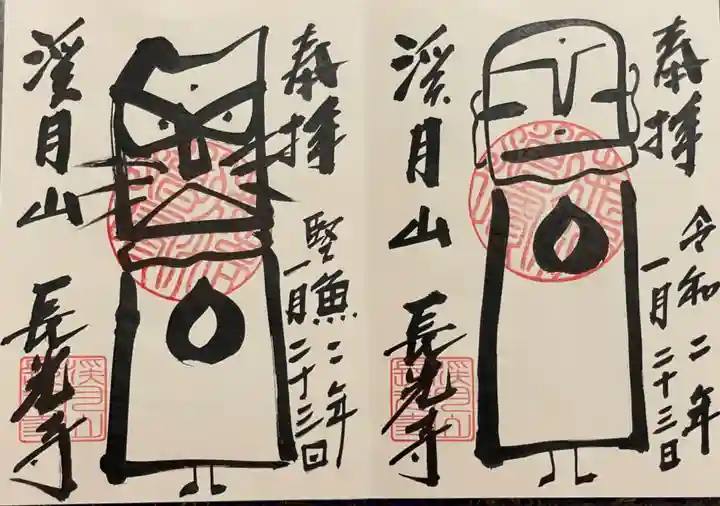 奉拝
令和二年
一月二十三日
溪月山 長光寺
奉拝
堅魚二年
一月二十三日
溪月山 長光寺